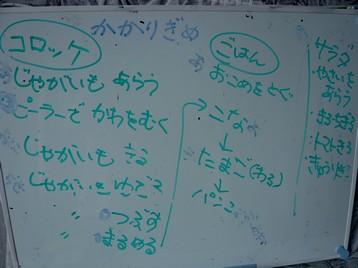 かかりぎめ
コロッケ
じゃがいも あらう
ピーラーで かわをむく
じゃがいも きる
じゃがいもゆでる
〃 つぶす
〃 まるめる
ごはん
おこめをとぐ
→ こな
↓
たまご(わる)
↓
パンこ
サラダ
・やさいを
あらう
・トマトきる